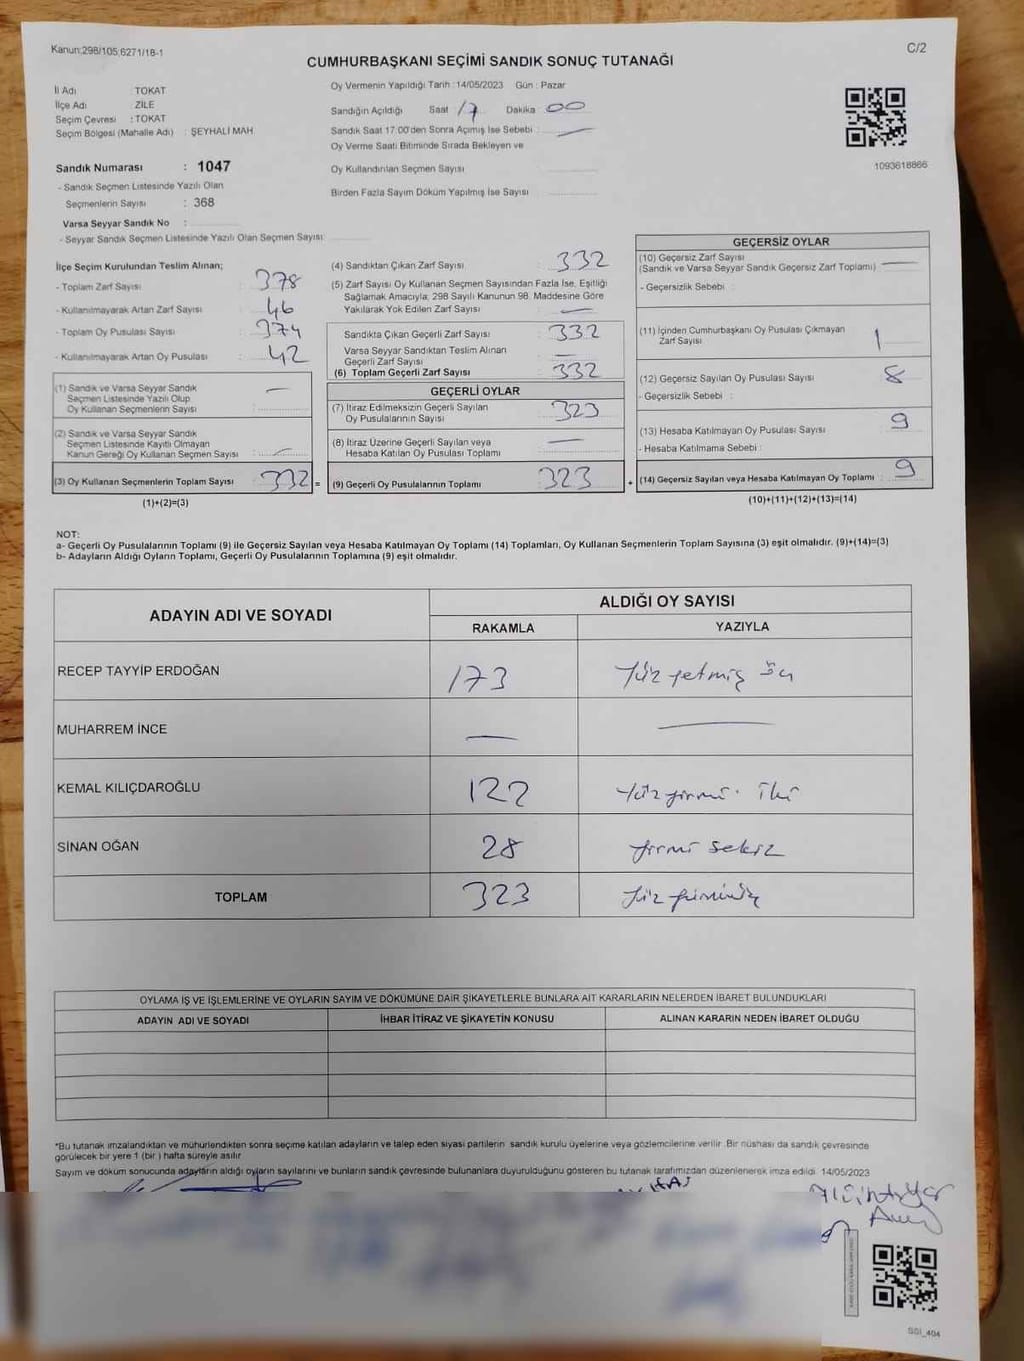 Kanun:298/105,6271/18-1
C/2
CUMHURBAŞKANI SEÇİMİ SANDIK SONUÇ TUTANAĞI
İl Adı : TOKAT
İlçe Adı : ZİLE
Seçim Çevresi : TOKAT
Seçim Bölgesi (Mahalle Adı) : ŞEYHALİ MAH
Sandık Numarası : 1047
- Sandık Seçmen Listesinde Yazılı Olan
Seçmenlerin Sayısı : 368
Varsa Seyyar Sandık No :
- Seyyar Sandık Seçmen Listesinde Yazılı Olan Seçmen Sayısı:
Oy Vermenin Yapıldığı Tarih :14/05/2023 Gün : Pazar
Sandığın Açıldığı Saat 17 Dakika 00
Sandık Saat 17:00'den Sonra Açılmış İse Sebebi : —
Oy Verme Saati Bitiminde Sırada Bekleyen ve
Oy Kullandırılan Seçmen Sayısı
Birden Fazla Sayım Döküm Yapılmış İse Sayısı
1093618866
İlçe Seçim Kurulundan Teslim Alınan;
- Toplam Zarf Sayısı : 378
- Kullanılmayarak Artan Zarf Sayısı : 46
- Toplam Oy Pusulası Sayısı : 374
- Kullanılmayarak Artan Oy Pusulası : 42
(1) Sandık ve Varsa Seyyar Sandık
Seçmen Listesinde Yazılı Olup
Oy Kullanan Seçmenlerin Sayısı : —
(2) Sandık ve Varsa Seyyar Sandık
Seçmen Listesinde Kayıtlı Olmayan
Kanun Gereği Oy Kullanan Seçmen Sayısı : —
(3) Oy Kullanan Seçmenlerin Toplam Sayısı : 332 =
(1)+(2)=(3)
(4) Sandıktan Çıkan Zarf Sayısı : 332
(5) Zarf Sayısı Oy Kullanan Seçmen Sayısından Fazla İse, Eşitliği
Sağlamak Amacıyla; 298 Sayılı Kanunun 98. Maddesine Göre
Yakılarak Yok Edilen Zarf Sayısı : —
Sandıkta Çıkan Geçerli Zarf Sayısı : 332
Varsa Seyyar Sandıktan Teslim Alınan
Geçerli Zarf Sayısı : —
(6) Toplam Geçerli Zarf Sayısı : 332
GEÇERLİ OYLAR
(7) İtiraz Edilmeksizin Geçerli Sayılan
Oy Pusulalarının Sayısı : 323
(8) İtiraz Üzerine Geçerli Sayılan veya
Hesaba Katılan Oy Pusulası Toplamı : —
(9) Geçerli Oy Pusulalarının Toplamı : 323 +
GEÇERSİZ OYLAR
(10) Geçersiz Zarf Sayısı
(Sandık ve Varsa Seyyar Sandık Geçersiz Zarf Toplamı) : —
- Geçersizlik Sebebi :
(11) İçinden Cumhurbaşkanı Oy Pusulası Çıkmayan
Zarf Sayısı : 1
(12) Geçersiz Sayılan Oy Pusulası Sayısı : 8
- Geçersizlik Sebebi :
(13) Hesaba Katılmayan Oy Pusulası Sayısı : 9
- Hesaba Katılmama Sebebi :
(14) Geçersiz Sayılan veya Hesaba Katılmayan Oy Toplamı : 9
(10)+(11)+(12)+(13)=(14)
NOT:
a- Geçerli Oy Pusulalarının Toplamı (9) ile Geçersiz Sayılan veya Hesaba Katılmayan Oy Toplamı (14) Toplamları, Oy Kullanan Seçmenlerin Toplam Sayısına (3) eşit olmalıdır. (9)+(14)=(3)
b- Adayların Aldığı Oyların Toplamı, Geçerli Oy Pusulalarının Toplamına (9) eşit olmalıdır.
ADAYIN ADI VE SOYADI
ALDIĞI OY SAYISI
RAKAMLA YAZIYLA
RECEP TAYYİP ERDOĞAN 173 Yüz yetmiş üç
MUHARREM İNCE — —
KEMAL KILIÇDAROĞLU 122 Yüz yirmi iki
SİNAN OĞAN 28 yirmi sekiz
TOPLAM 323
OYLAMA İŞ VE İŞLEMLERİNE VE OYLARIN SAYIM VE DÖKÜMÜNE DAİR ŞİKAYETLERLE BUNLARA AİT KARARLARIN NELERDEN İBARET BULUNDUKLARI
ADAYIN ADI VE SOYADI İHBAR İTİRAZ VE ŞİKAYETİN KONUSU ALINAN KARARIN NEDEN İBARET OLDUĞU
*Bu tutanak imzalandıktan ve mühürlendikten sonra seçime katılan adayların ve talep eden siyasi partilerin sandık kurulu üyelerine veya gözlemcilerine verilir. Bir nüshası da sandık çevresinde
görülecek bir yere 1 (bir ) hafta süreyle asılır
Sayım ve döküm sonucunda adayların aldığı oyların sayılarını ve bunların sandık çevresinde bulunanlara duyurulduğunu gösteren bu tutanak tarafımızdan düzenlenerek imza edildi. 14/05/2023
SSI_404